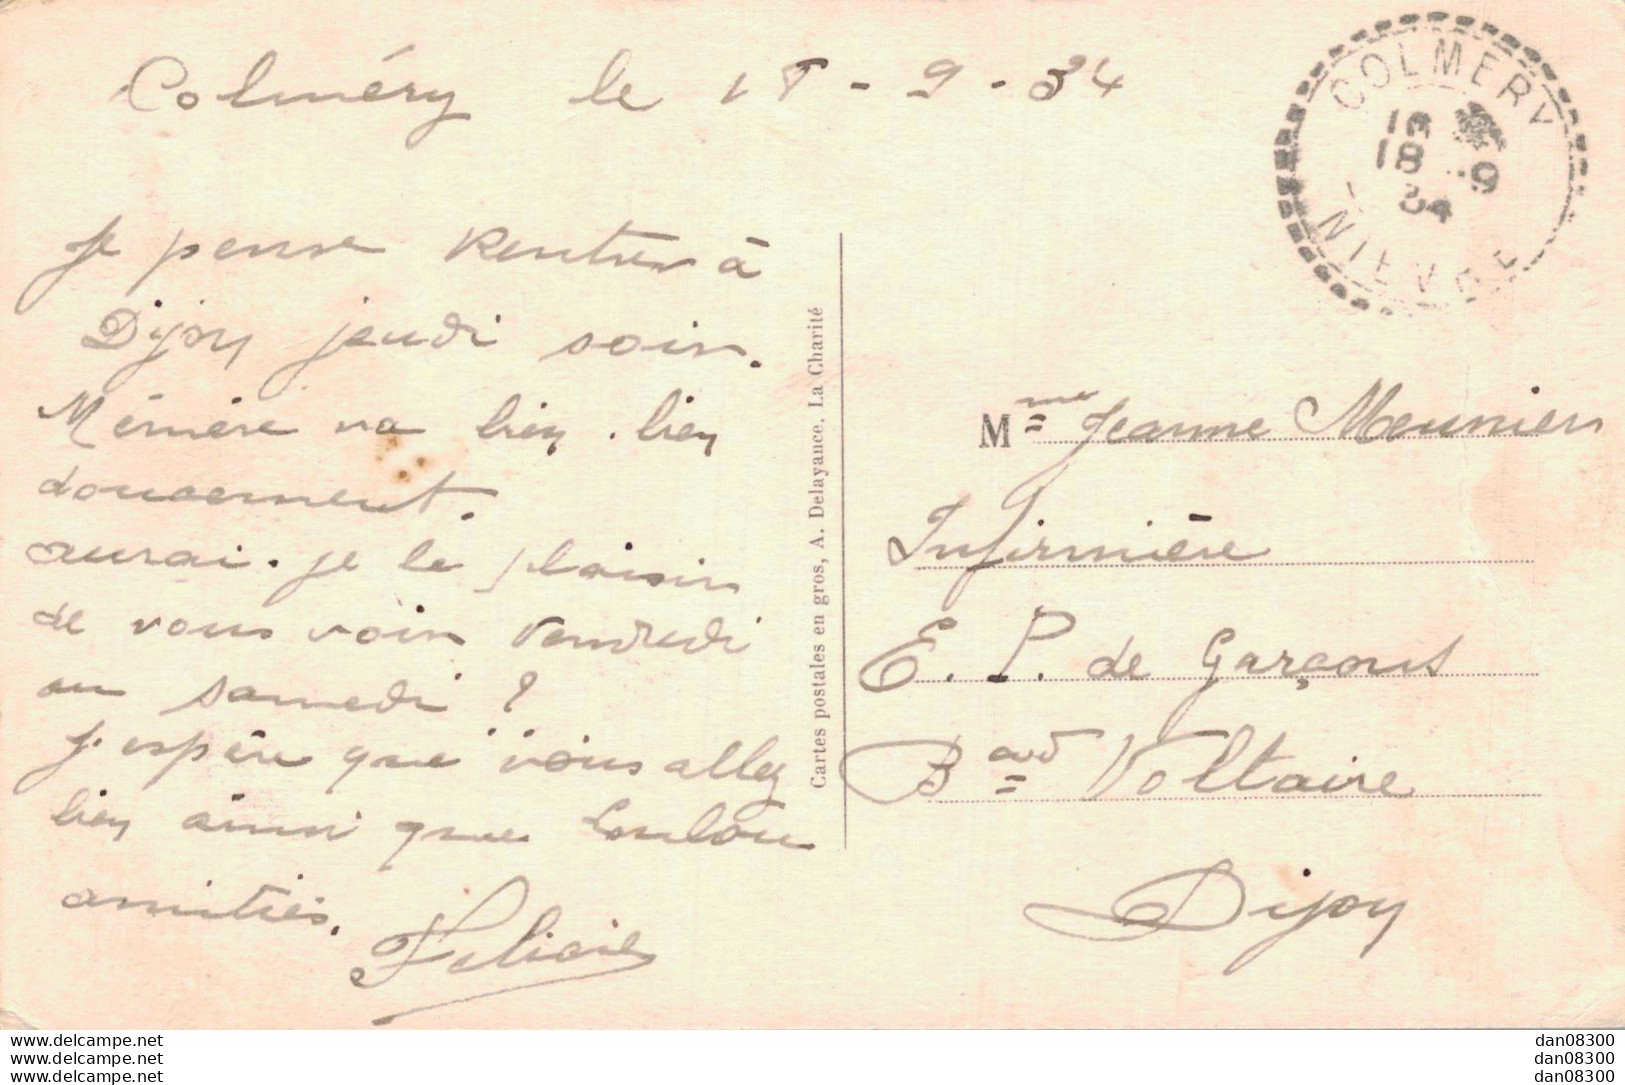 Colméry le 18-9-34
Je pense rentrer à
Dijon jeudi soir.
Mémère va bien. bien
doucement.
aurai-je le plaisir
de vous voir Vendredi
ou samedi?
J'espère que vous allez
bien ainsi que Loulou
amitiés.
Felicie
Cartes postales en gros, A. Delayance, La Charité
COLMERY
18 -9
34
NIEVRE
Mme Jeanne Meunier
Infirmière
E. P. de Garçons
Bard Voltaire
Dijon
www.delcampe.net
www.delcampe.net
www.delcampe.net
dan08300
dan08300
dan08300